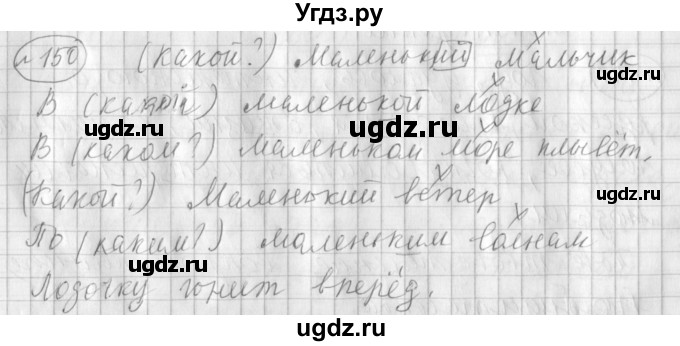 Угдз.ру
150 (Какой?) Маленький мальчик
В (какой) маленькой лодке
В (каком?) маленьком море плывёт.
(Какой?) Маленький ветер
По (каким?) маленьким волнам
Лодочку гонит вперёд.
ugdz.ru
ugdz.ru
ugdz.ru
ugdz.ru
ugdz.ru
ugdz.ru
ugdz.ru
ugdz.ru
ugdz.ru